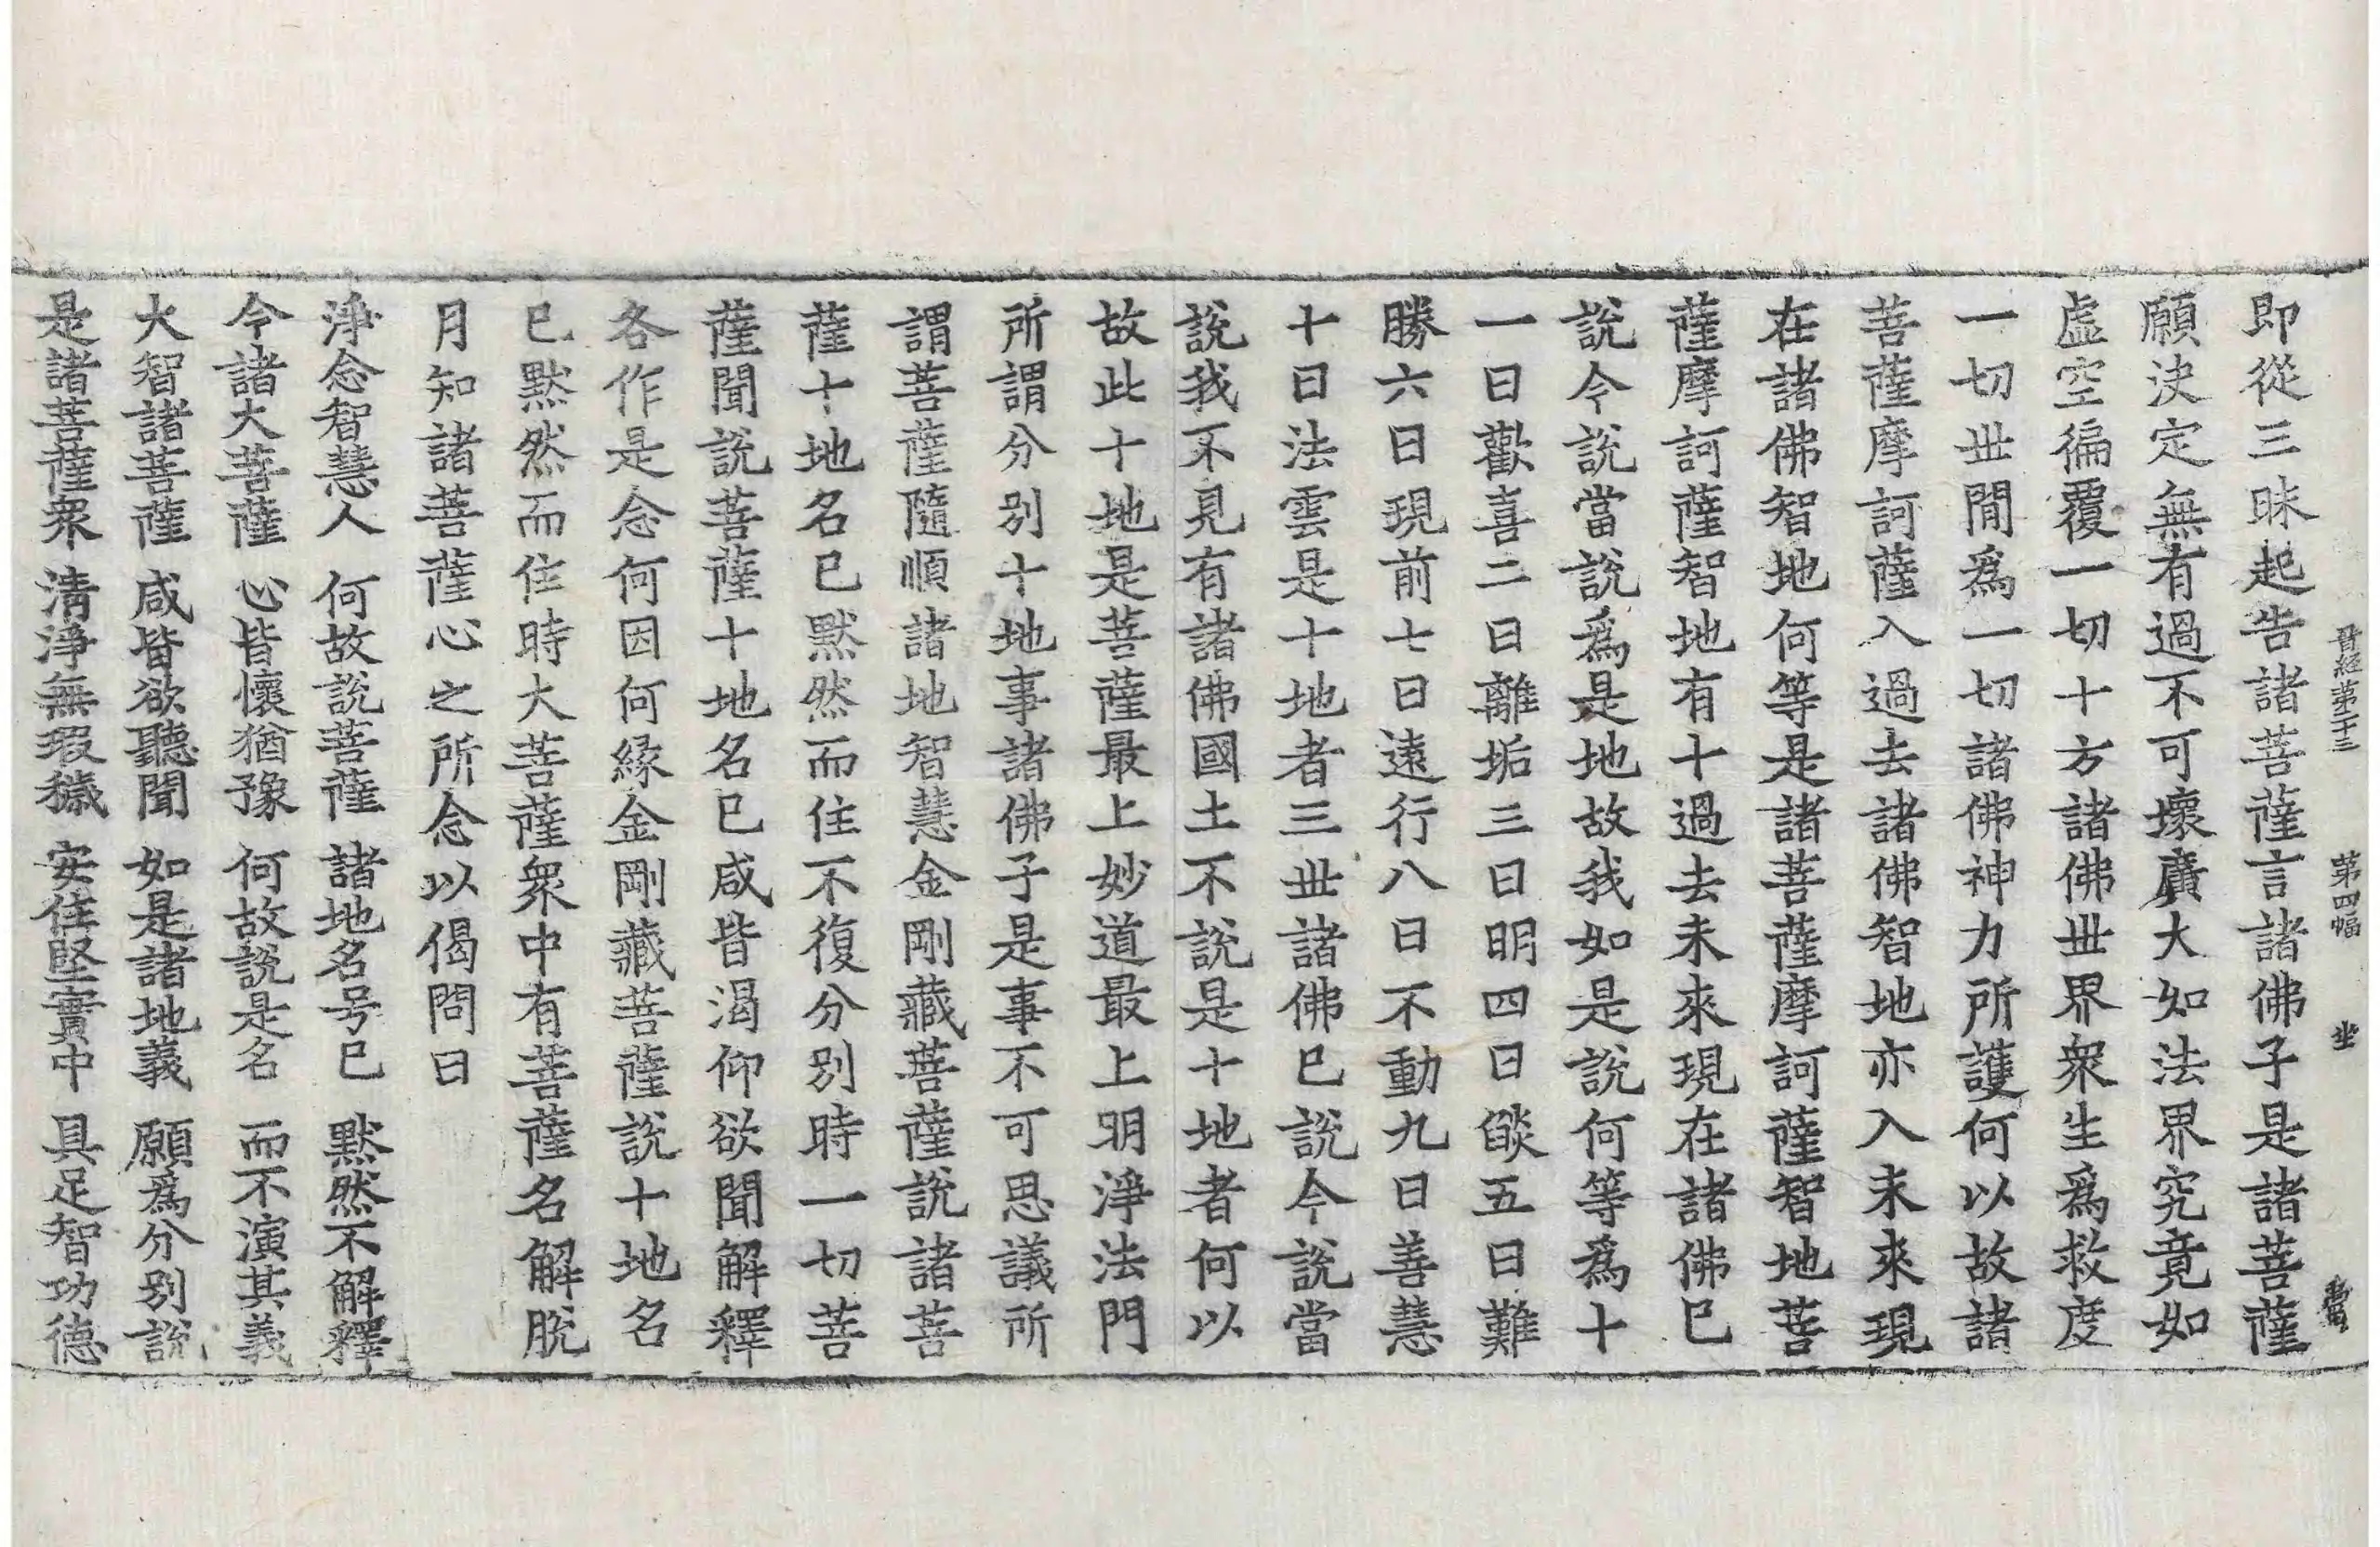 晉經第二十三 第四幅 坐
即從三昧起告諸菩薩言諸佛子是諸菩薩
願決定無有過不可壞廣大如法界究竟如
虛空徧覆一切十方諸佛世界衆生爲救度
一切世間爲一切諸佛神力所護何以故諸
菩薩摩訶薩入過去諸佛智地亦入未來現
在諸佛智地何等是諸菩薩摩訶薩智地菩
薩摩訶薩智地有十過去未來現在諸佛已
說今說當說爲是地故我如是說何等爲十
一曰歡喜二曰離垢三曰明四曰燄五曰難
勝六曰現前七曰遠行八曰不動九曰善慧
十曰法雲是十地者三世諸佛已說今說當
說我不見有諸佛國土不說是十地者何以
故此十地是菩薩最上妙道最上明淨法門
所謂分別十地事諸佛子是事不可思議所
謂菩薩隨順諸地智慧金剛藏菩薩說諸菩
薩十地名已黙然而住不復分別時一切菩
薩聞說菩薩十地名已咸皆渴仰欲聞解釋
各作是念何因何緣金剛藏菩薩說十地名
已黙然而住時大菩薩衆中有菩薩名解脫
月知諸菩薩心之所念以偈問曰
淨念智慧人 何故說菩薩 諸地名号已 黙然不解釋
今諸大菩薩 心皆懷猶豫 何故說是名 而不演其義
大智諸菩薩 咸皆欲聽聞 如是諸地義 願爲分別說
是諸菩薩衆 淸淨無瑕穢 安住堅實中 具足智功德